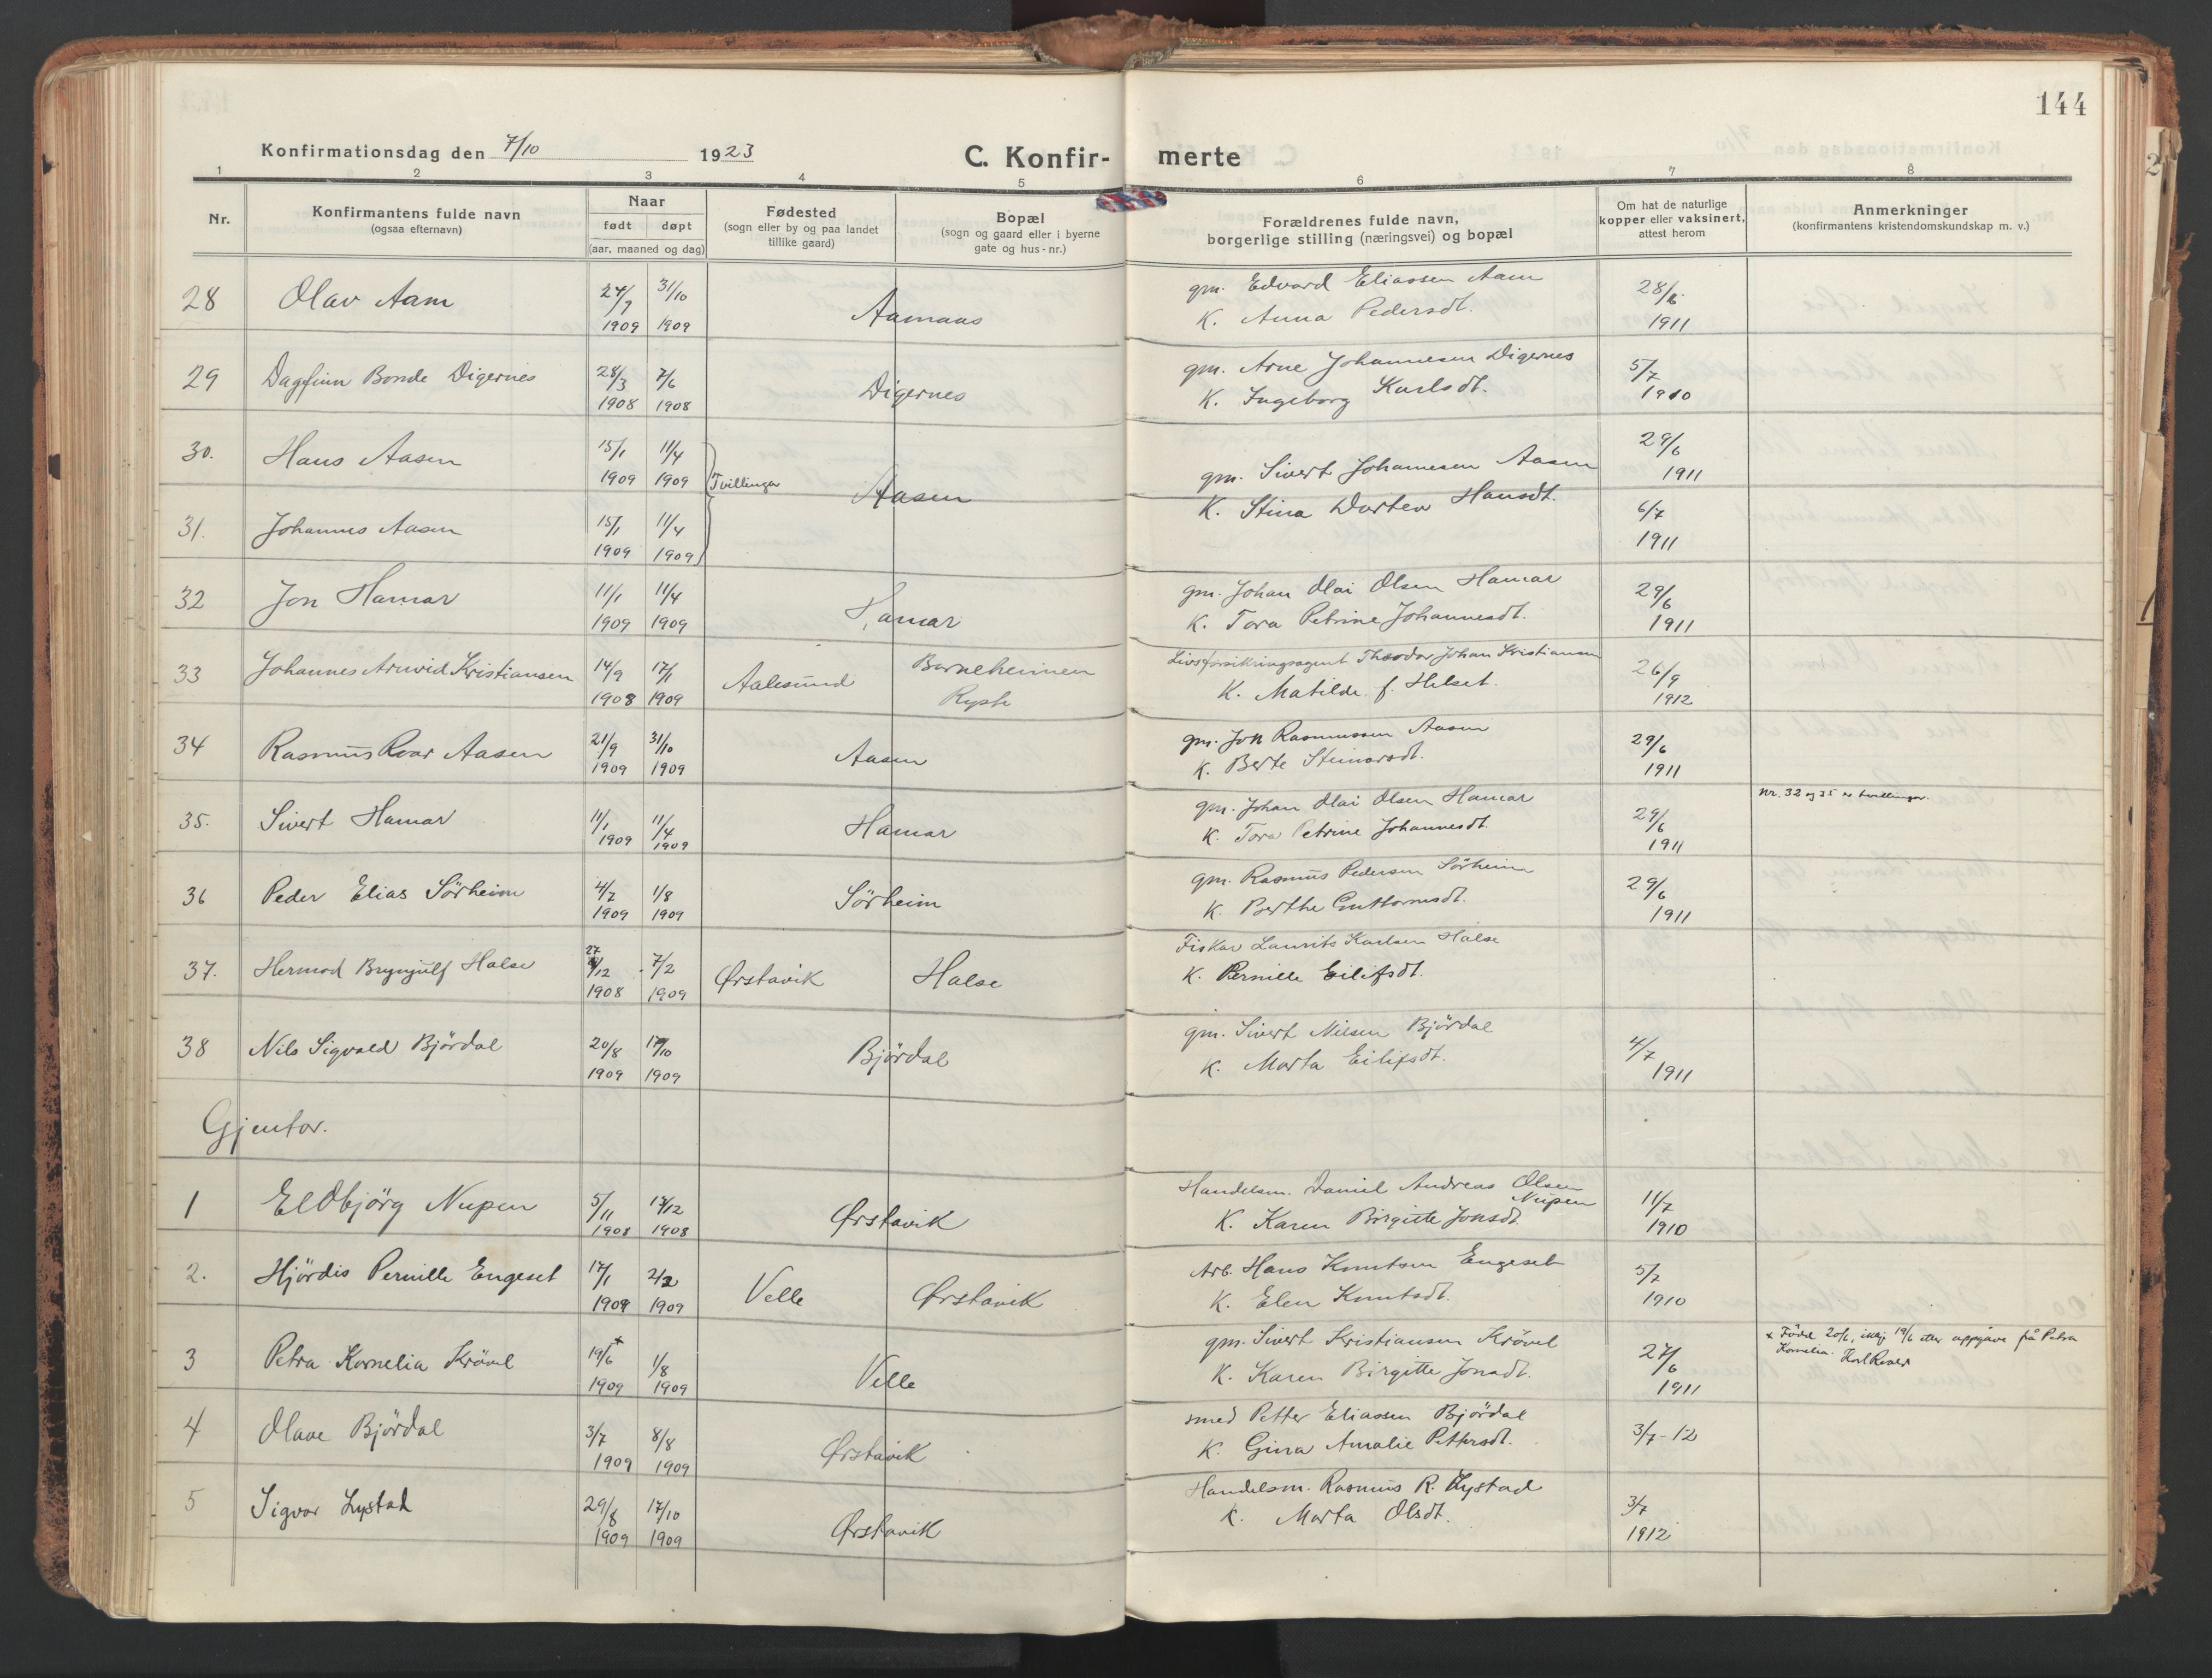 144
Konfirmationsdag den 7/10 1923
C. Konfir- merte
1 2 3 4 5 6 7 8
Nr.
Konfirmantens fulde navn
(ogsaa efternavn)
Naar
født døpt
(aar, maaned og dag)
Fødested
(sogn eller by og paa landet
tillike gaard)
Bopæl
(sogn og gaard eller i byerne
gate og hus-nr.)
Forældrenes fulde navn,
borgerlige stilling (næringsvei) og bopæl
Om hat de naturlige
kopper eller vaksinert,
attest herom
Anmerkninger
(konfirmantens kristendomskundskap m. v.)
28 Olav Aam 24/7 1909 31/10 1909 Aamaas
gm. Edvard Eliassen Aam
K. Anna Pedersdt.
28/6 1911
29 Dagfinn Bonde Digernes 28/3 1908 7/6 1908 Digernes
gm. Arne Johannesen Digernes
K. Ingeborg Karlsdt.
5/7 1910
30. Hans Aasen 15/1 1909 11/4 1909 Tvillingar Aasen
gm. Sivert Johannesen Aasen
K. Stina Dortea Hansdt.
29/6 1911
31. Johannes Aasen 15/1 1909 11/4 1909
6/7 1911
32 Jon Hamar 11/1 1909 11/4 1909 Hamar
gm. Johan Olai Olsen Hamar
K. Tora Petrine Johannesdt.
29/6 1911
33 Johannes Arnvid Kristiansen 14/9 1908 17/1 1909 Aalesund Barneheimen Ryste
Livsforsikringsagent Theodor Johan Kristiansen
K. Matilde f. Helset.
26/9 1912
34 Rasmus Roar Aasen 21/9 1909 31/10 1909 Aasen
gm. Jon Rasmussen Aasen
K. Berte Steinarsdt.
29/6 1911
35. Sivert Hamar 11/1 1909 11/4 1909 Hamar
gm. Johan Olai Olsen Hamar
K. Tora Petrine Johannesdt.
29/6 1911
Nr. 32 og 35 er tvillingar.
36 Peder Elias Sörheim 4/7 1909 1/8 1909 Sörheim
gm. Rasmus Pedersen Sörheim
K. Berthe Guttormsdt.
29/6 1911
37. Hermod Brynjulf Halse 27/12 1908 7/2 1909 Ørstavik Halse
Fiskar Laurits Karlsen Halse
K. Pernille Eilifsdt.
38 Nils Sigvald Björdal 20/8 1909 17/10 1909 Björdal
gm. Sivert Nilsen Björdal
K. Marta Eilifsdt.
4/7 1911
Gjentor.
1 Eldbjörg Nupen 5/11 1908 1908 Ørstavik
Handelsm. Daniel Andreas Olsen
Nupen
K. Karen Birgitte Jonsdt.
11/7 1910
2. Hjördis Pernille Engeset 17/1 1909 1909 Velle Ørstavik
Arb. Hans Knutsen Engeset
K. Elen Knutsdt.
5/7 1910
3 Petra Kornelia Krövel 19/6 x 1909 1/8 1909 Velle
gm. Sivert Kristiansen Krövel
K. Karen Birgitte Jonsdt.
27/6 1911
x Född 20/6, ikkje 19/6 etter uppgåve frå Petra
Kornelia.
4 Olave Björdal 3/7 1909 8/8 1909 Ørstavik
smed Petter Eliassen Björdal
K. Gina Amalie Pettersdt.
3/7-12
5 Sigvor Lystad 29/8 1909 17/10 1909 Ørstavik
Handelsm. Rasmus R. Lystad
K. Marta Olsdt.
3/7 1912